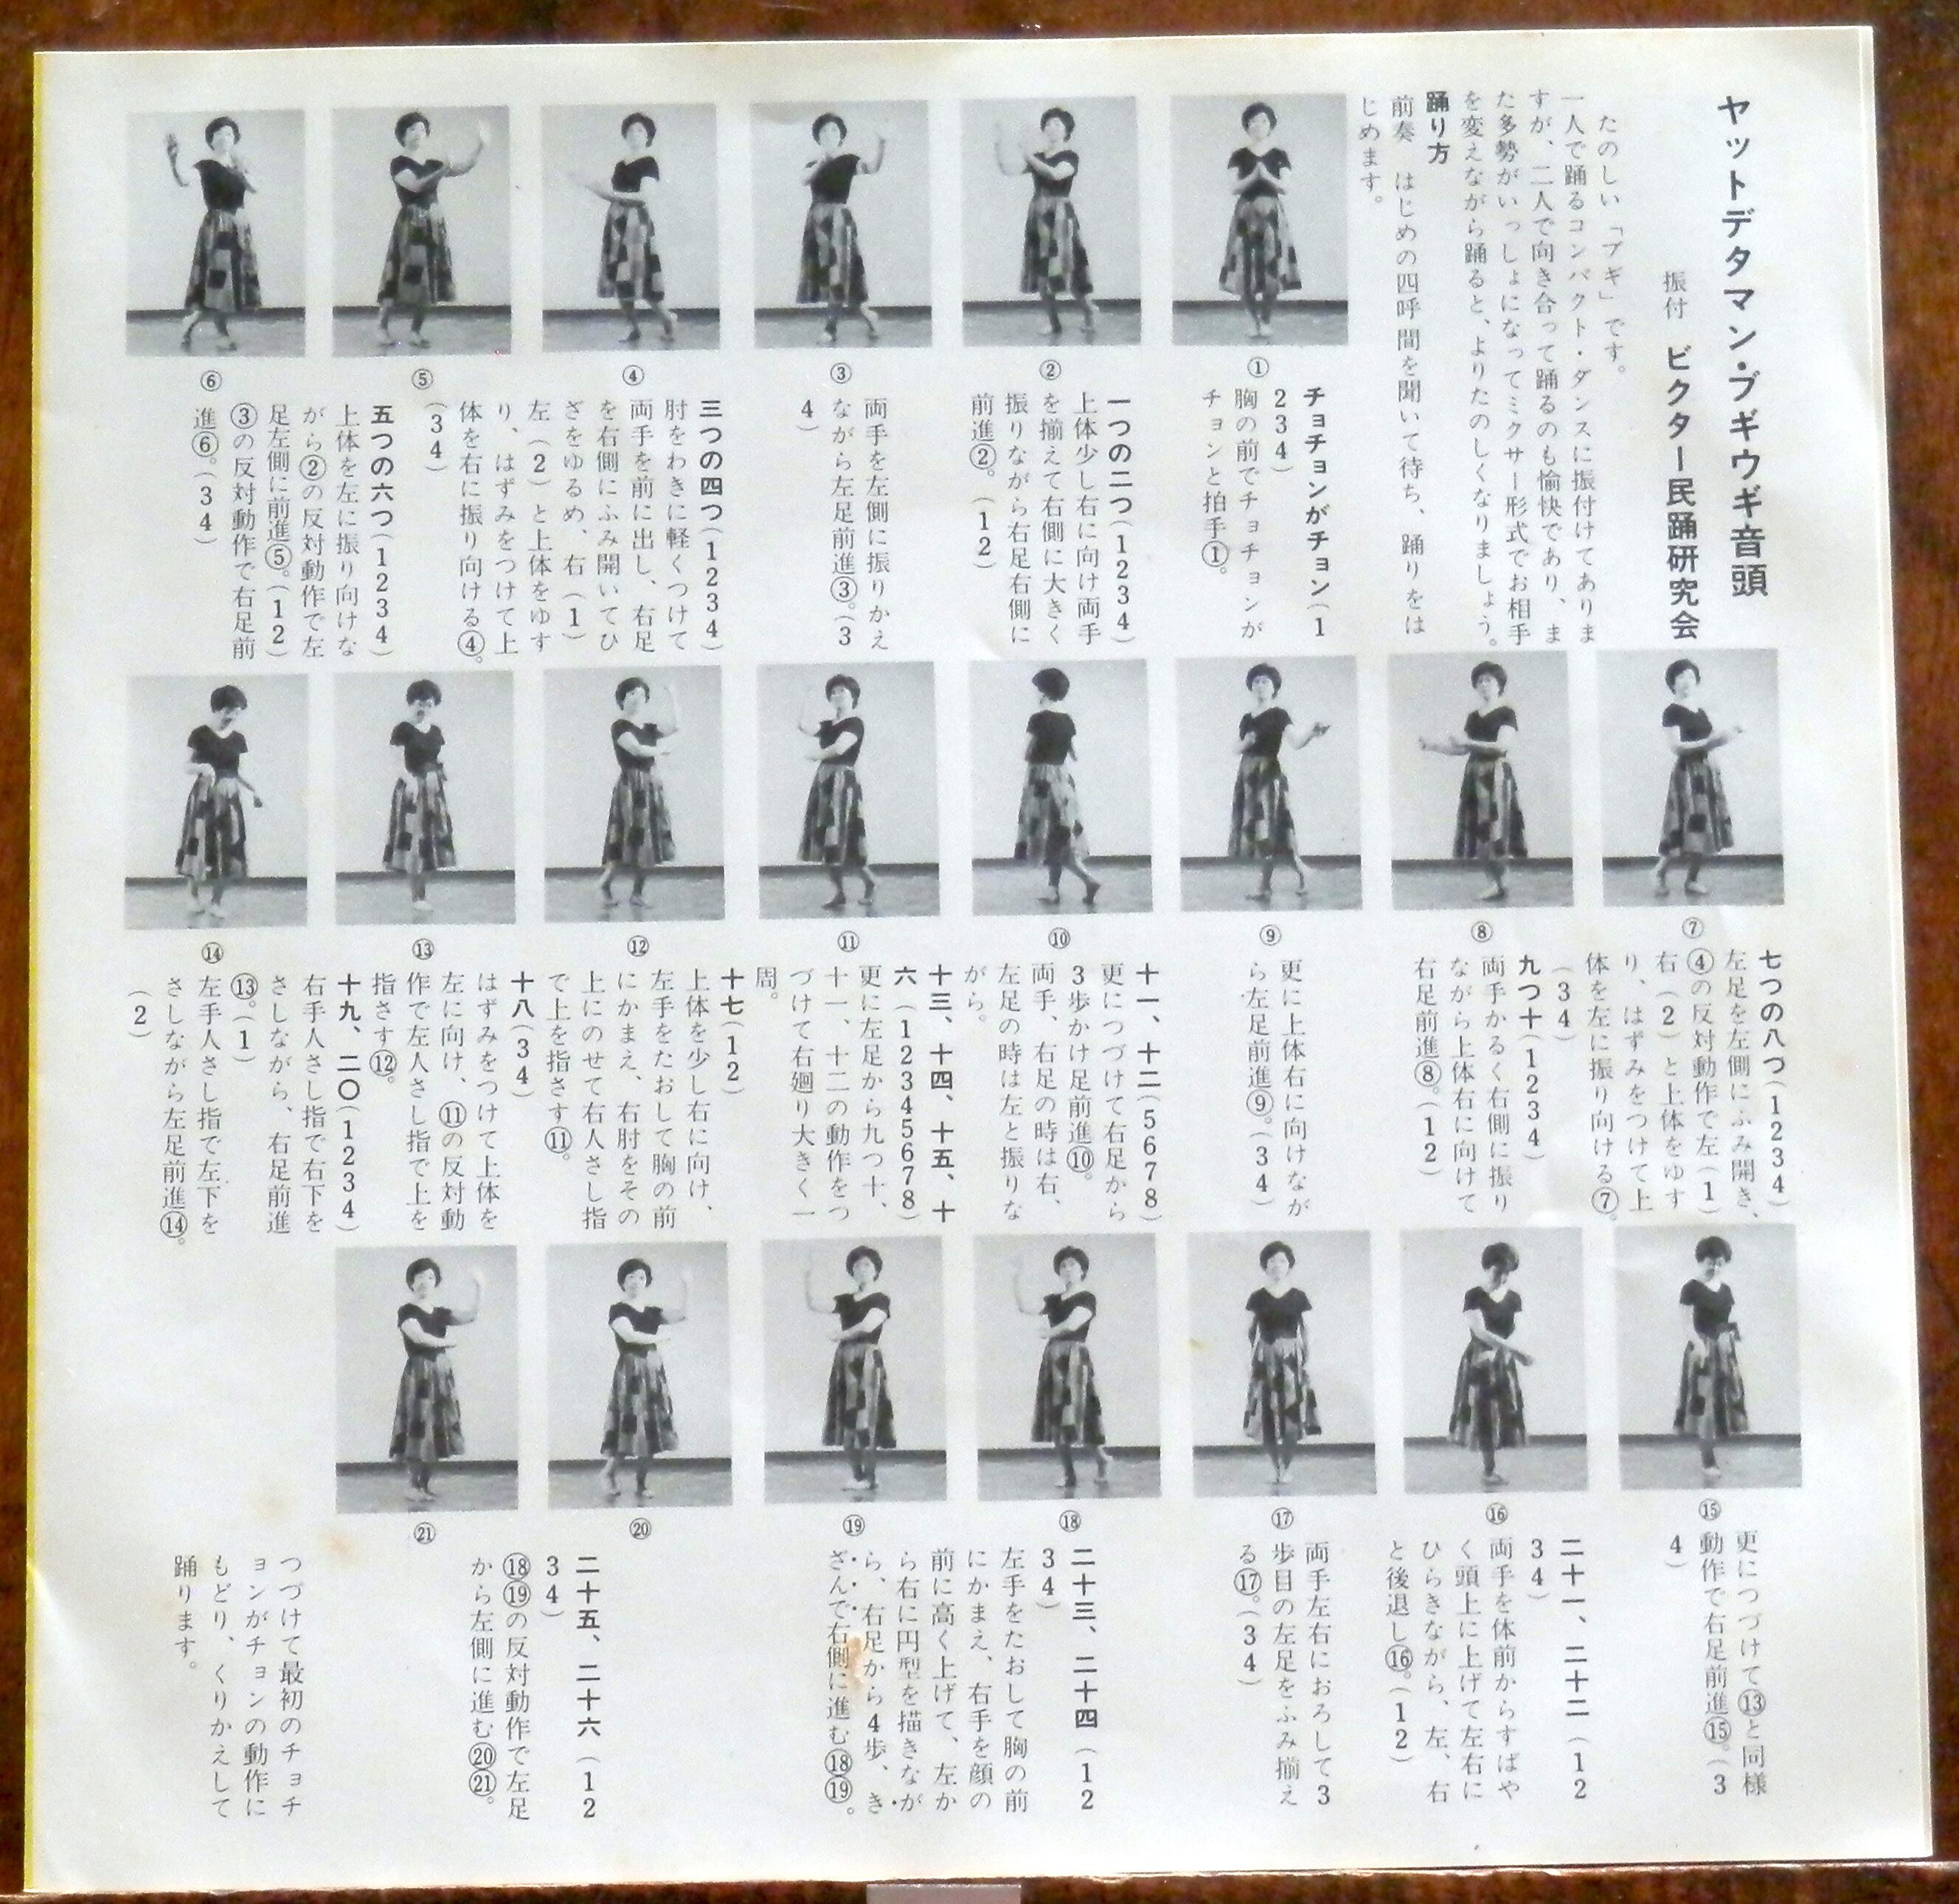 ヤットデタマン・ブギウギ音頭
振付 ビクター民踊研究会
たのしい「ブギ」です。
一人で踊るコンパクト・ダンスに振付けてありま
すが、二人で向き合って踊るのも愉快であり、ま
た多勢がいっしょになってミクサー形式でお相手
を変えながら踊ると、よりたのしくなりましょう。
踊り方
前奏 はじめの四呼間を聞いて待ち、踊りをは
じめます。
①
チョチョンがチョン(1
234)
胸の前でチョチョンが
チョンと拍手①。
②
一つの二つ(1234)
上体少し右に向け両手
を揃えて右側に大きく
振りながら右足右側に
前進②。(12)
③
両手を左側に振りかえ
ながら左足前進③。(3
4)
④
三つの四つ(1234)
肘をわきに軽くつけて
両手を前に出し、右足
を右側にふみ開いてひ
ざをゆるめ、右(1)
左(2)と上体をゆす
り、はずみをつけて上
体を右に振り向ける④。
(34)
⑤
五つの六つ(1234)
上体を左に振り向けな
がら②の反対動作で左
足左側に前進⑤。(12)
⑥
③の反対動作で右足前
進⑥。(34)
⑦
七つの八つ(1234)
左足を左側にふみ開き、
④の反対動作で左(1)
右(2)と上体をゆす
り、はずみをつけて上
体を左に振り向ける⑦。
(34)
⑧
九つ十(1234)
両手かるく右側に振り
ながら上体右に向けて
右足前進⑧。(12)
⑨
更に上体右に向けなが
ら左足前進⑨。(34)
⑩
十一、十二(5678)
更につづけて右足から
3歩かけ足前進⑩。
両手、右足の時は右、
左足の時は左と振りな
がら。
十三、十四、十五、十
六(12345678)
更に左足から九つ十、
十一、十二の動作をつ
づけて右廻り大きく一
周。
⑪
十七(12)
上体を少し右に向け、
左手をたおして胸の前
にかまえ、右肘をその
上にのせて右人さし指
で上を指さす⑪。
⑫
十八(34)
はずみをつけて上体を
左に向け、⑪の反対動
作で左人さし指で上を
指さす⑫。
⑬
十九、二〇(1234)
右手人さし指で右下を
さしながら、右足前進
⑬。(1)
⑭
左手人さし指で左下を
さしながら左足前進⑭。
(2)
⑮
更につづけて⑬と同様
動作で右足前進⑮。(3
4)
⑯
二十一、二十二(12
34)
両手を体前からすばや
く頭上に上げて左右に
ひらきながら、左、右
と後退し⑯。(12)
⑰
両手左右におろして3
歩目の左足をふみ揃え
る⑰。(34)
⑱
⑲
二十三、二十四(12
34)
左手をたおして胸の前
にかまえ、右手を顔の
前に高く上げて、左か
ら右に円型を描きなが
ら、右足から4歩、き
ざんで右側に進む⑱⑲。
⑳
㉑
二十五、二十六(12
34)
⑱⑲の反対動作で左足
から左側に進む⑳㉑。
つづけて最初のチョチ
ョンがチョンの動作に
もどり、くりかえして
踊ります。